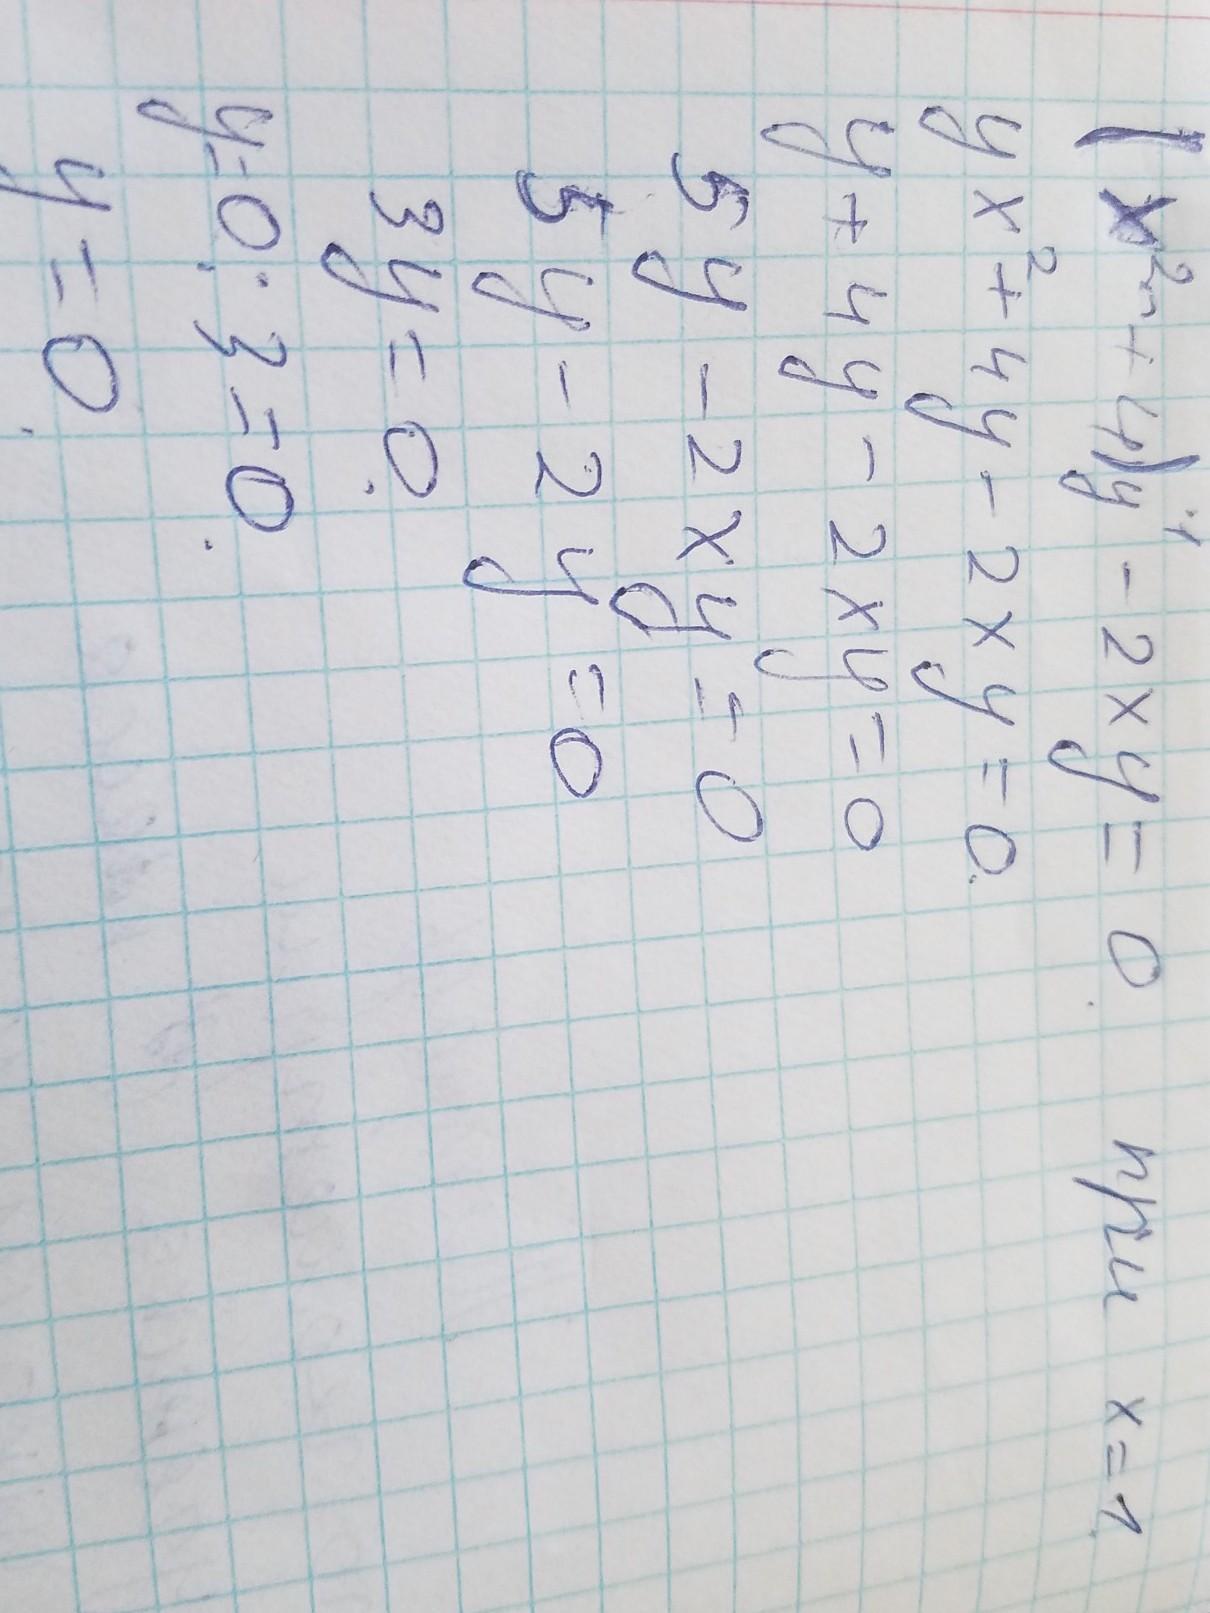 (x² + 4)y - 2xy = 0 при x = 1
yx² + 4y - 2xy = 0.
y + 4y - 2xy = 0
5y - 2xy = 0
5y - 2y = 0
3y = 0.
y = 0 : 3 = 0.
y = 0.